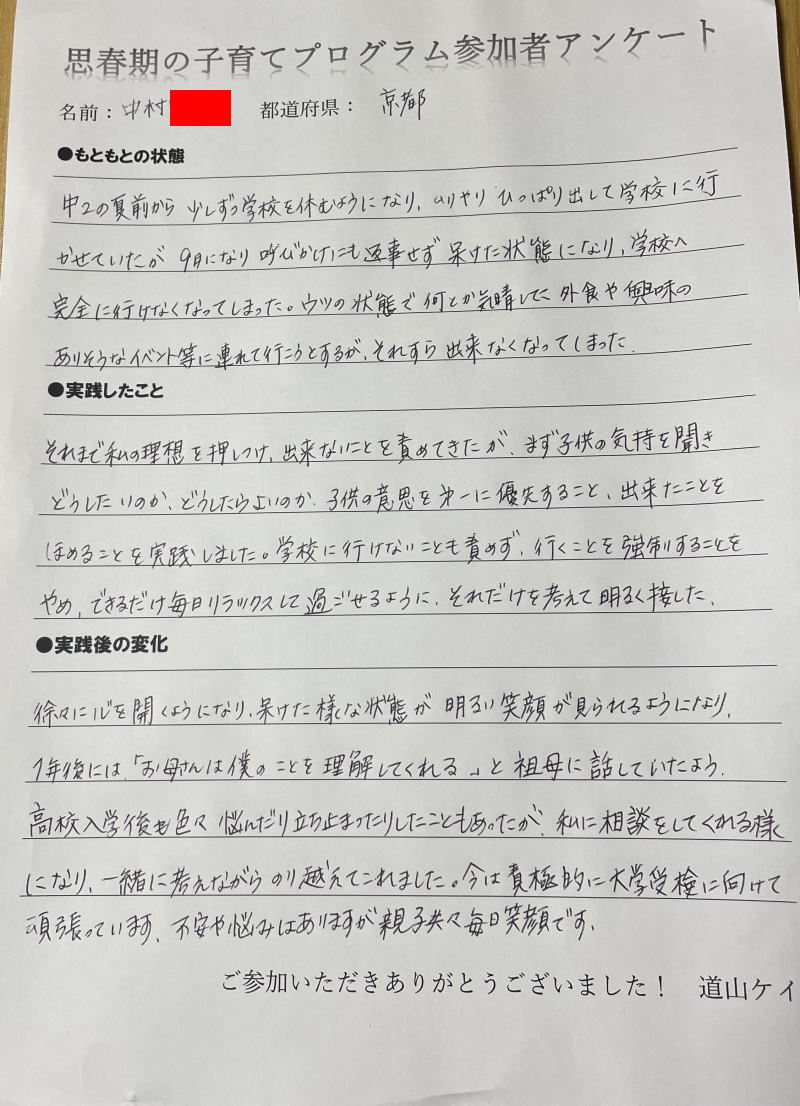 思春期の子育てプログラム参加者アンケート
名前：中村 都道府県： 京都
●もともとの状態
中2の夏前から 少しずつ学校を休むようになり、ムリやり ひっぱり出して学校に行
かせていたが 9月になり 呼びかけにも返事せず 呆けた状態になり、学校へ
完全に行けなくなってしまった。ウツの状態で 何とか気晴しに 外食や興味の
ありそうなイベント等に連れて行こうとするが、それすら 出来なくなってしまった。
●実践したこと
それまで私の理想を押しつけ、出来ないことを責めてきたが、まず子供の気持を聞き
どうしたいのか、どうしたらよいのか、子供の意思を第一に優先すること、出来たことを
ほめることを実践しました。学校に行けないことも責めず、行くことを強制することを
やめ、できるだけ毎日リラックスして過ごせるように、それだけを考えて明るく接した。
●実践後の変化
徐々に心を開くようになり、呆けた様な状態が 明るい笑顔が見られるようになり、
1年後には、「お母さんは僕のことを理解してくれる」と祖母に話していたよう。
高校入学後も色々悩んだり立ち止まったりしたこともあったが、私に相談をしてくれる様
になり、一緒に考えながらのり越えてこれました。今は責極的に大学受検に向けて
頑張っています、不安や悩みはありますが親子共々毎日笑顔です。
ご参加いただきありがとうございました！ 道山ケイ